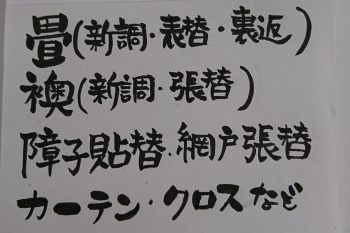 畳(新調・表替・裏返)
襖(新調・張替)
障子貼替・網戸張替
カーテン・クロスなど